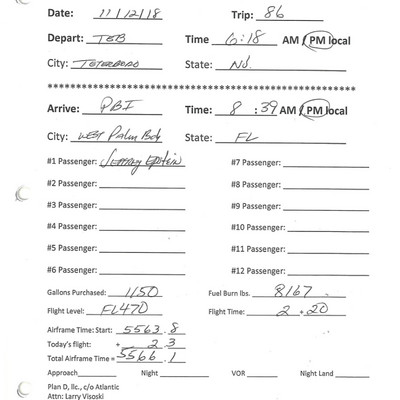 Date: 11/12/18 Trip: 86
Depart: TEB Time 6:18 AM / PM local
City: Teterboro State: NJ
************************************************
Arrive: PBI Time: 8 : 39 AM / PM local
City: West Palm Bch State: FL
#1 Passenger: Jeffrey Epstein #7 Passenger:
#2 Passenger: #8 Passenger:
#3 Passenger: #9 Passenger:
#4 Passenger: #10 Passenger:
#5 Passenger: #11 Passenger:
#6 Passenger: #12 Passenger:
Gallons Purchased: 1150 Fuel Burn lbs. 8167
Flight Level: FL470 Flight Time: 2 + 20
Airframe Time: Start: 5563 . 8
Today's flight: + 2 . 3
Total Airframe Time = 5566 . 1
Approach Night VOR Night Land
Plan D, llc., c/o Atlantic
Attn: Larry Visoski